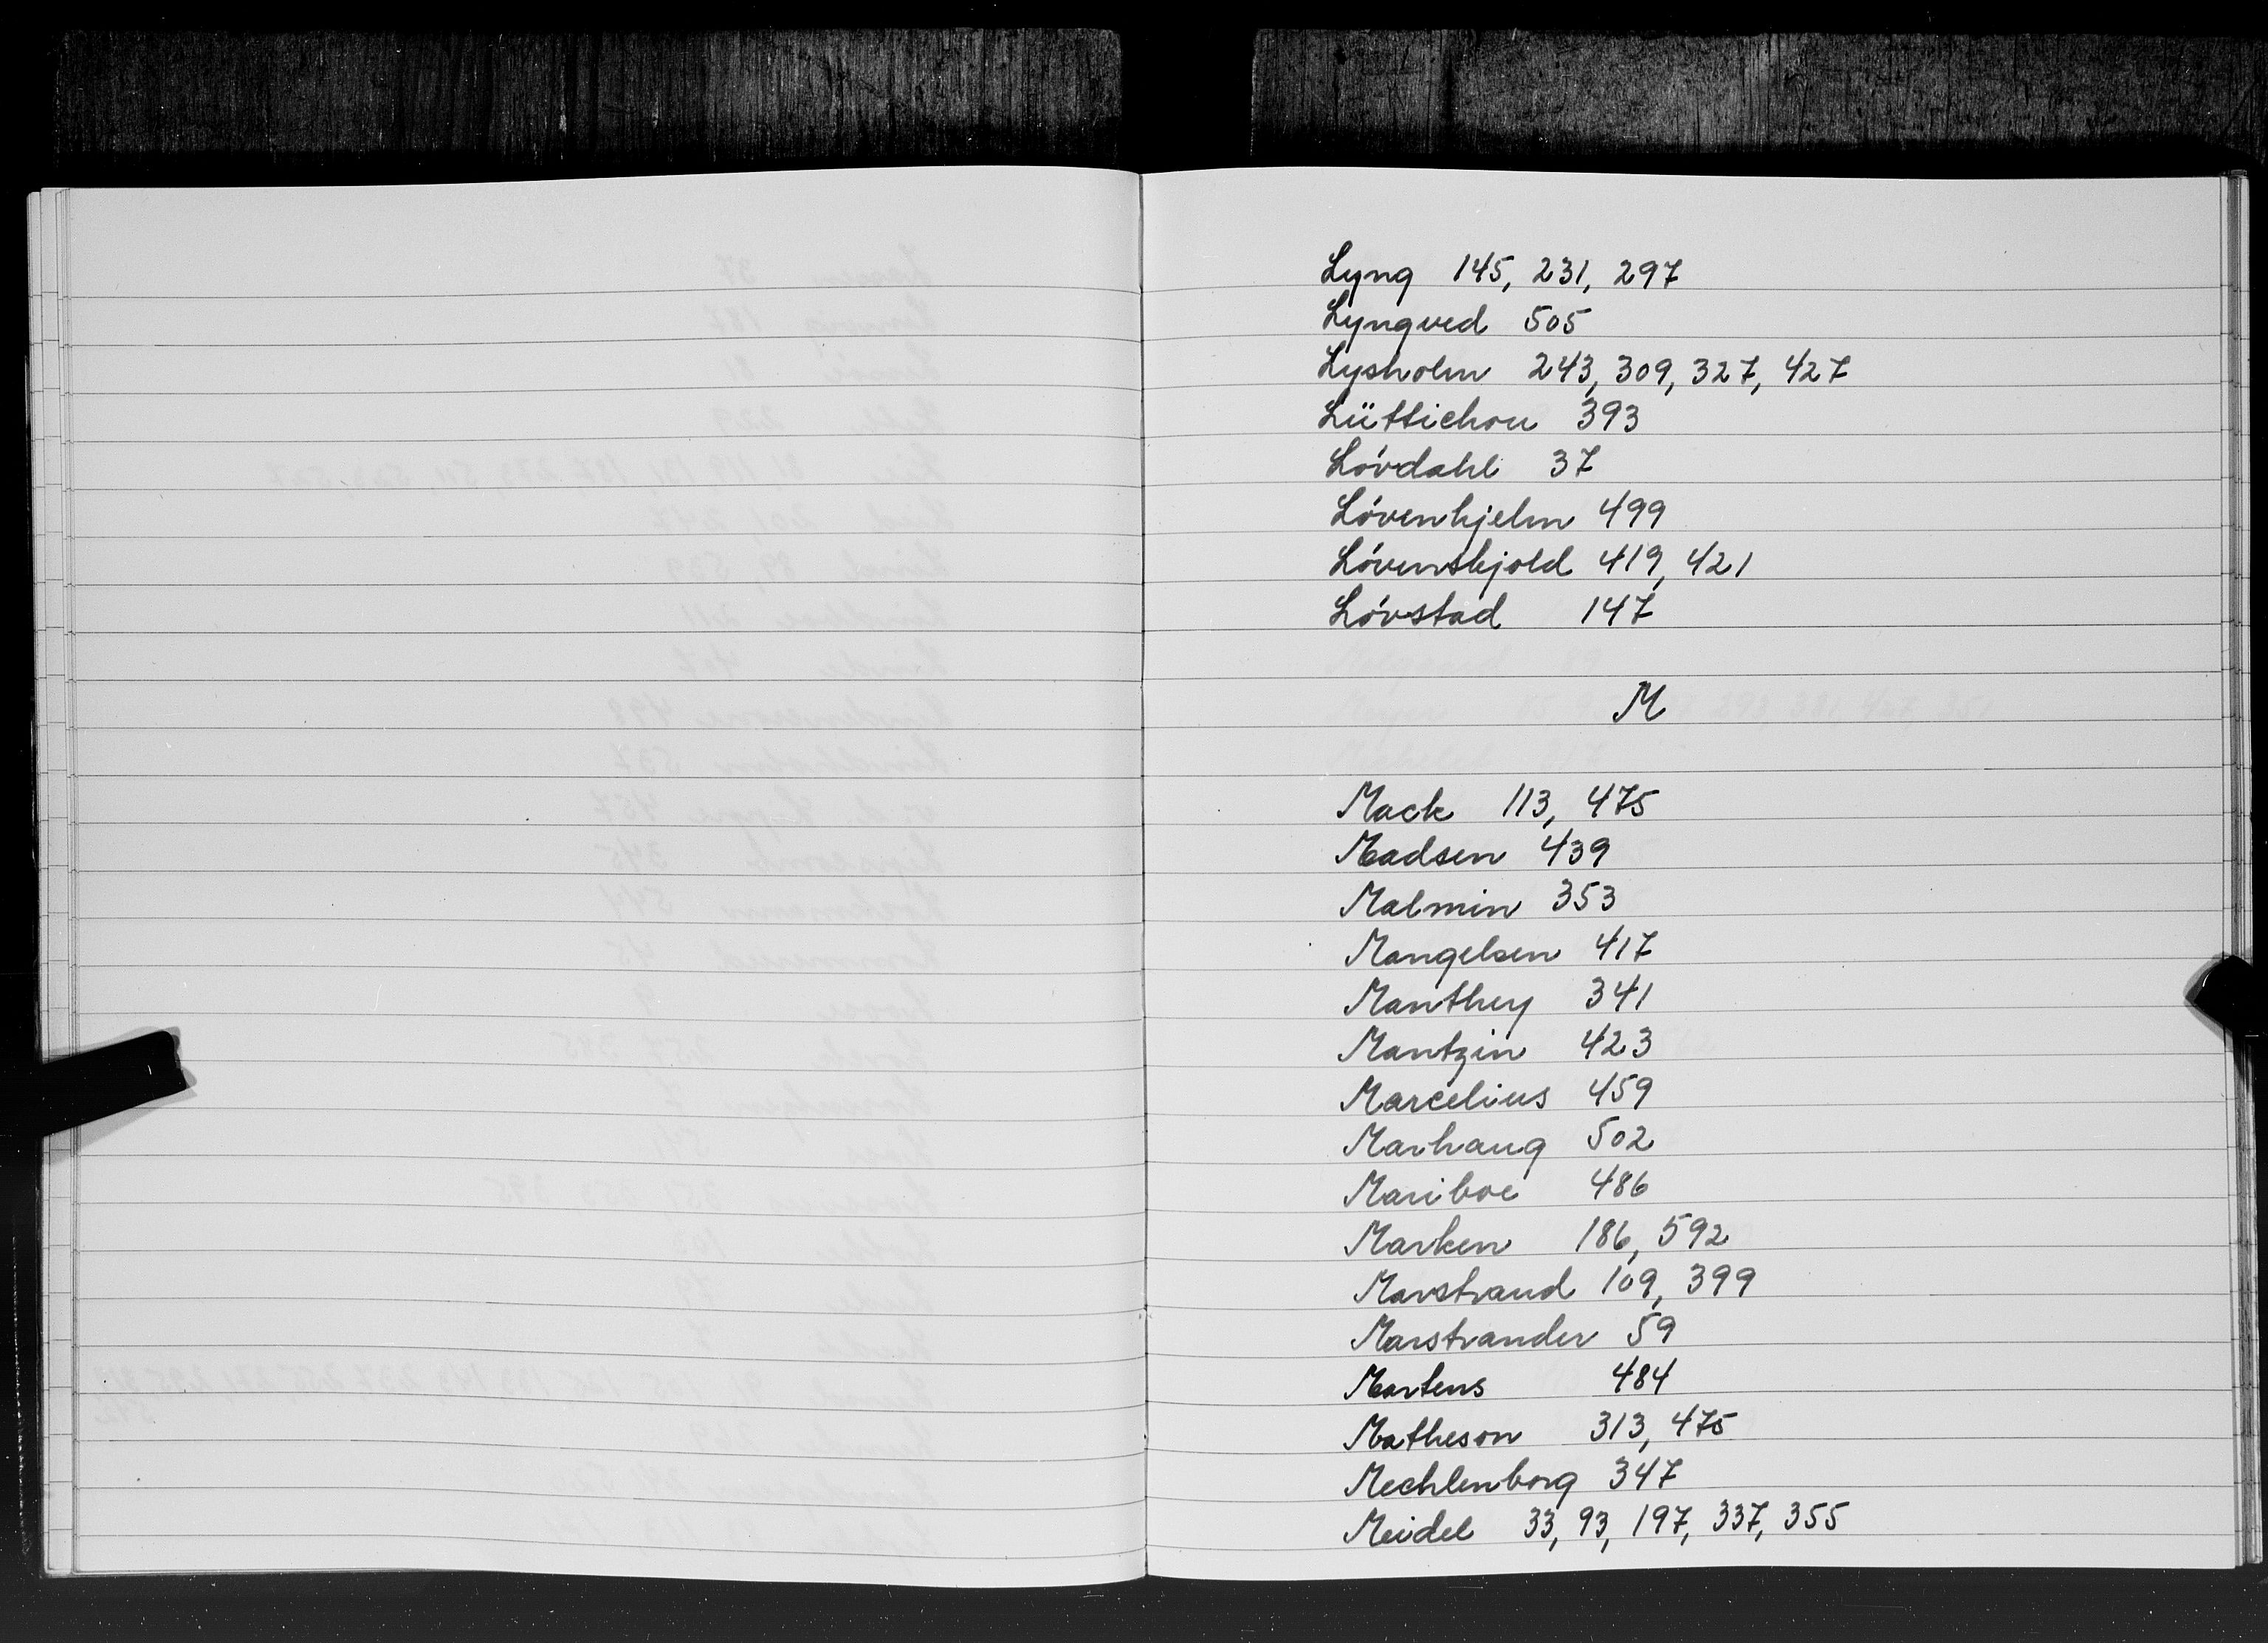 Lyng 145, 231, 297
Lyngved 505
Lysholm 243, 309, 327, 427
Lüttichou 393
Lóvdahl 37
Lóvenhjelm 499
Lóvenskjold 419, 421
Lóvstad 147
M
Mack 113, 475
Madsen 439
Malmin 353
Mangelsen 417
Manthey 341
Mantzin 423
Marcelius 459
Marhaug 502
Mariboe 486
Marken 186, 592
Marstrand 109, 399
Marstrander 59
Martens 484
Matheson 313, 475
Mechlenborg 347
Meidel 33, 93, 197, 337, 355